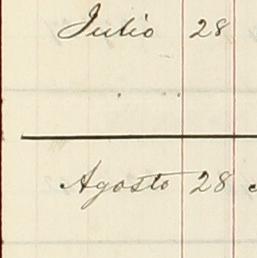 Julio 28
Agosto 28